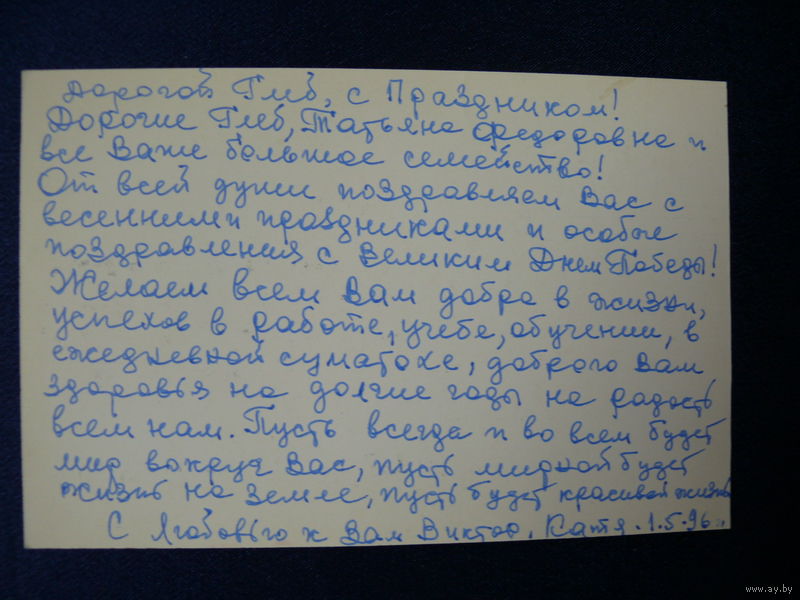 Дорогой Глеб, с Праздником!
Дорогие Глеб, Татьяна Федоровна и
все Ваше большое семейство!
От всей души поздравляем Вас с
весенними праздниками и особые
поздравления с Великим Днем Победы!
Желаем всем Вам добра в жизни,
успехов в работе, учебе, обучении, в
ежедневной суматохе, доброго Вам
здоровья на долгие годы на радость
всем нам. Пусть всегда и во всем будет
мир вокруг Вас, пусть мирной будет
жизнь на земле, пусть будет красивой жизнь
С любовью к Вам Виктор, Катя. 1.5.96 г.
www.ay.by